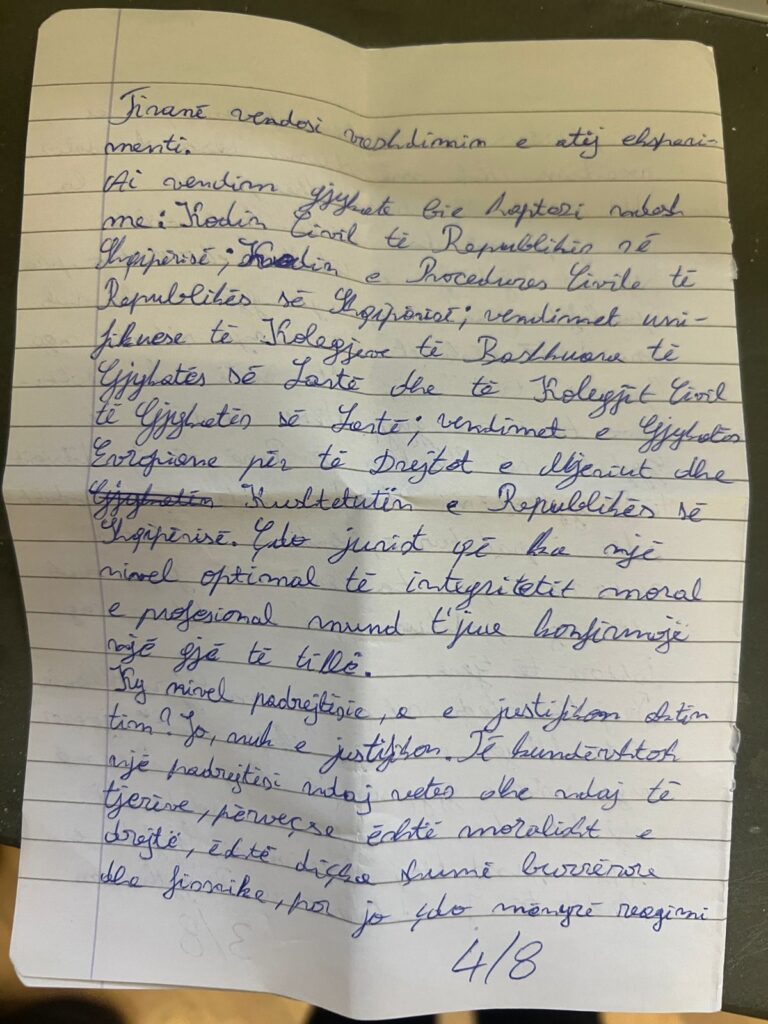 Tiranë vendosi rreshdimin e atij ekspari-
menti.
Ai vendim gjyqate bie haptazi ndesh
me: Kodin Civil të Republikës së
Shqipërisë; Kodin e Procedures Civile të
Republikës së Shqipërisë; vendimet uni-
fikuese të Kolegjeve të Bashkuara të
Gjykatës së Lartë dhe të Kolegjit Civil
të Gjykatës së Lartë; vendimet e Gjykatës
Evropiane për të Drejtat e Njeriut dhe
Gjykatën Kushtetutën e Republikës së
Shqipërisë. Çdo jurist që ka një
nivel optimal të integritetit moral
e profesional mund t'jua konfirmojë
një gjë të tillë.
Ky nivel padrejtësie, a e justifikon aktin
tim? Jo, nuk e justifikon. Të kundërshtosh
një padrejtësi ndaj vetes dhe ndaj të
tjerëve, përveçse është moralisht e
drejtë, është diçka shumë burrërore
dhe fisnike, por jo çdo mënyrë reagimi
4/8
3/8